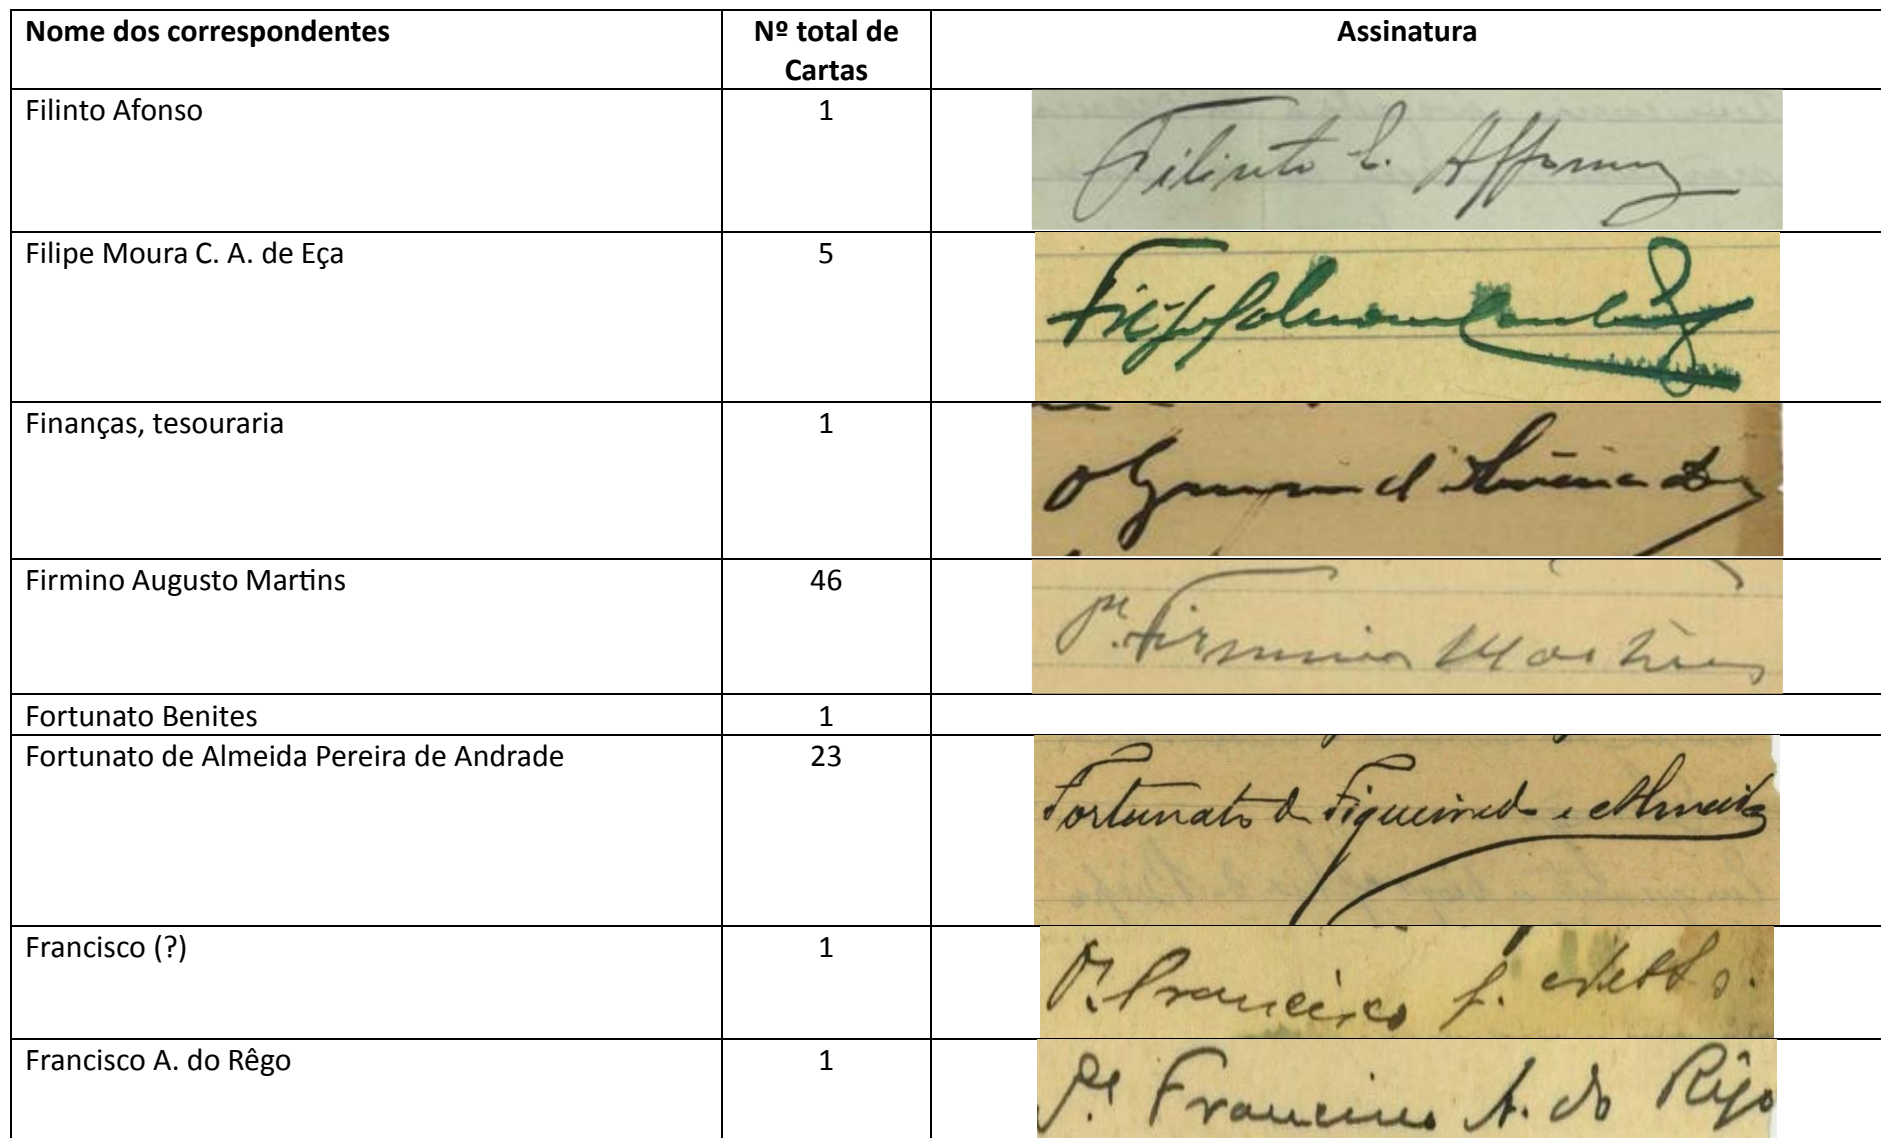 Nome dos correspondentes Nº total de Cartas Assinatura
Filinto Afonso 1 Filinto E. Affonso
Filipe Moura C. A. de Eça 5
Finanças, tesouraria 1
Firmino Augusto Martins 46 Pe. Firmino Martins
Fortunato Benites 1
Fortunato de Almeida Pereira de Andrade 23 Fortunato de Figueiredo e Almeida
Francisco (?) 1 Pe. Francisco
Francisco A. do Rêgo 1 Pe. Francisco A. do Rêgo